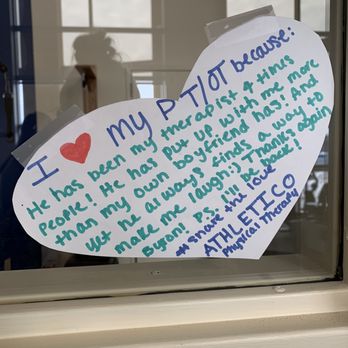 I ❤ my PT/OT because:
He has been my therapist 4 times
people! He has put up with me more
than my own boyfriend has! And
yet he always finds a way to
make me laugh:) Thanks again
Byron! P.S. I'll be back!
## share the love
ATHLETICO
Physical Therapy